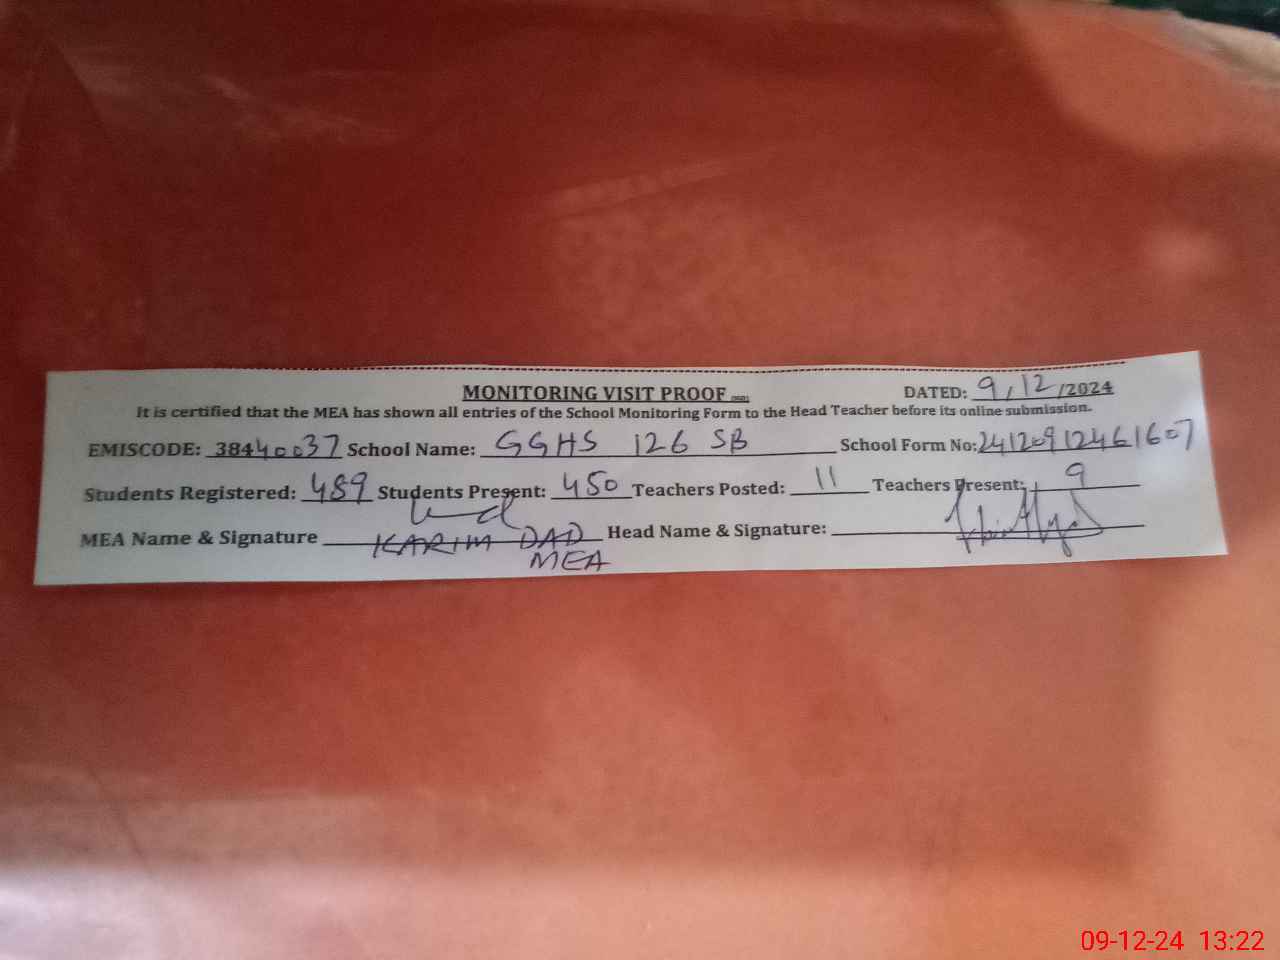 MONITORING VISIT PROOF DATED: 9/12/2024
It is certified that the MEA has shown all entries of the School Monitoring Form to the Head Teacher before its online submission.
EMISCODE: 38440037 School Name: GGHS 126 SB School Form No: 24120912461607
Students Registered: 489 Students Present: 450 Teachers Posted: 11 Teachers Present: 9
MEA Name & Signature KARIM DAD Head Name & Signature:
MEA
09-12-24 13:22